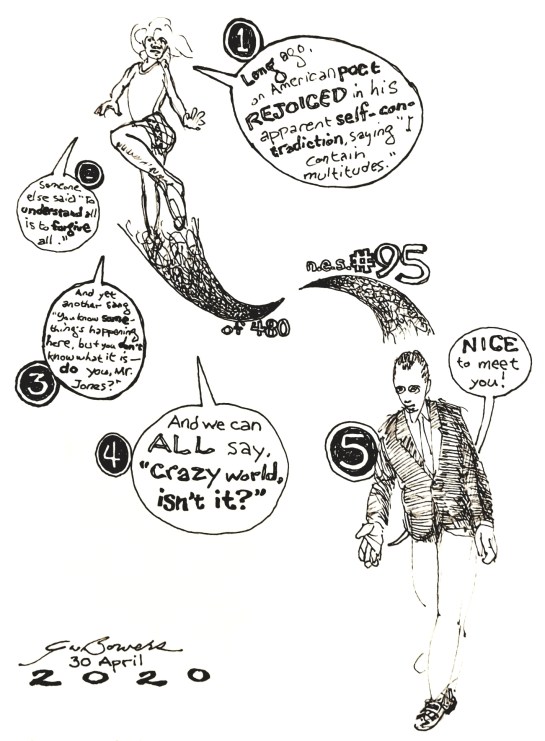 1
Long ago,
an American poet
REJOICED in his
apparent self-con-
tradiction, saying "I
contain
multitudes."
2
Someone
else said "To
understand all
is to forgive
all."
3
And yet
another sang
"You know some-
thing's happening
here, but you don't
know what it is—
do you, Mr.
Jones?"
n.e.s. #95
of 480
4
And we can
ALL say,
"Crazy world,
isn't it?"
5
NICE
to meet
you!
30 April
2020